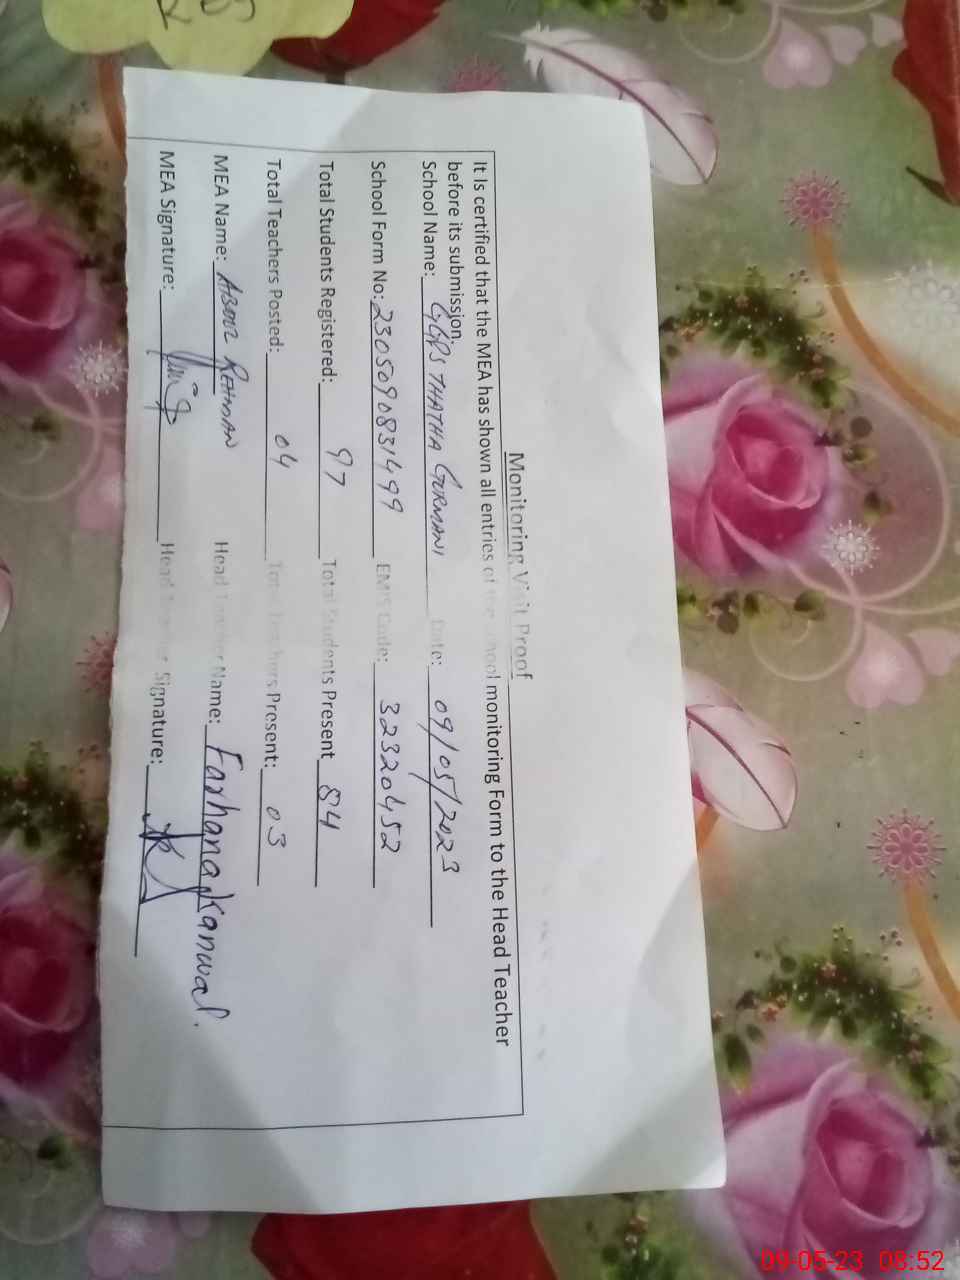 Monitoring Visit Proof
It Is certified that the MEA has shown all entries of the school monitoring Form to the Head Teacher
before its submission.
School Name: GGPS THATHA GURMANI Date: 09/05/2023
School Form No: 2305090831499 EMIS Code: 32320452
Total Students Registered: 97 Total Students Present 84
Total Teachers Posted: 04 Total Teachers Present: 03
MEA Name: ABDUR REHMAN Head Teacher Name: Farhana Kanwal.
MEA Signature: Head Teacher Signature:
09-05-23 08:52